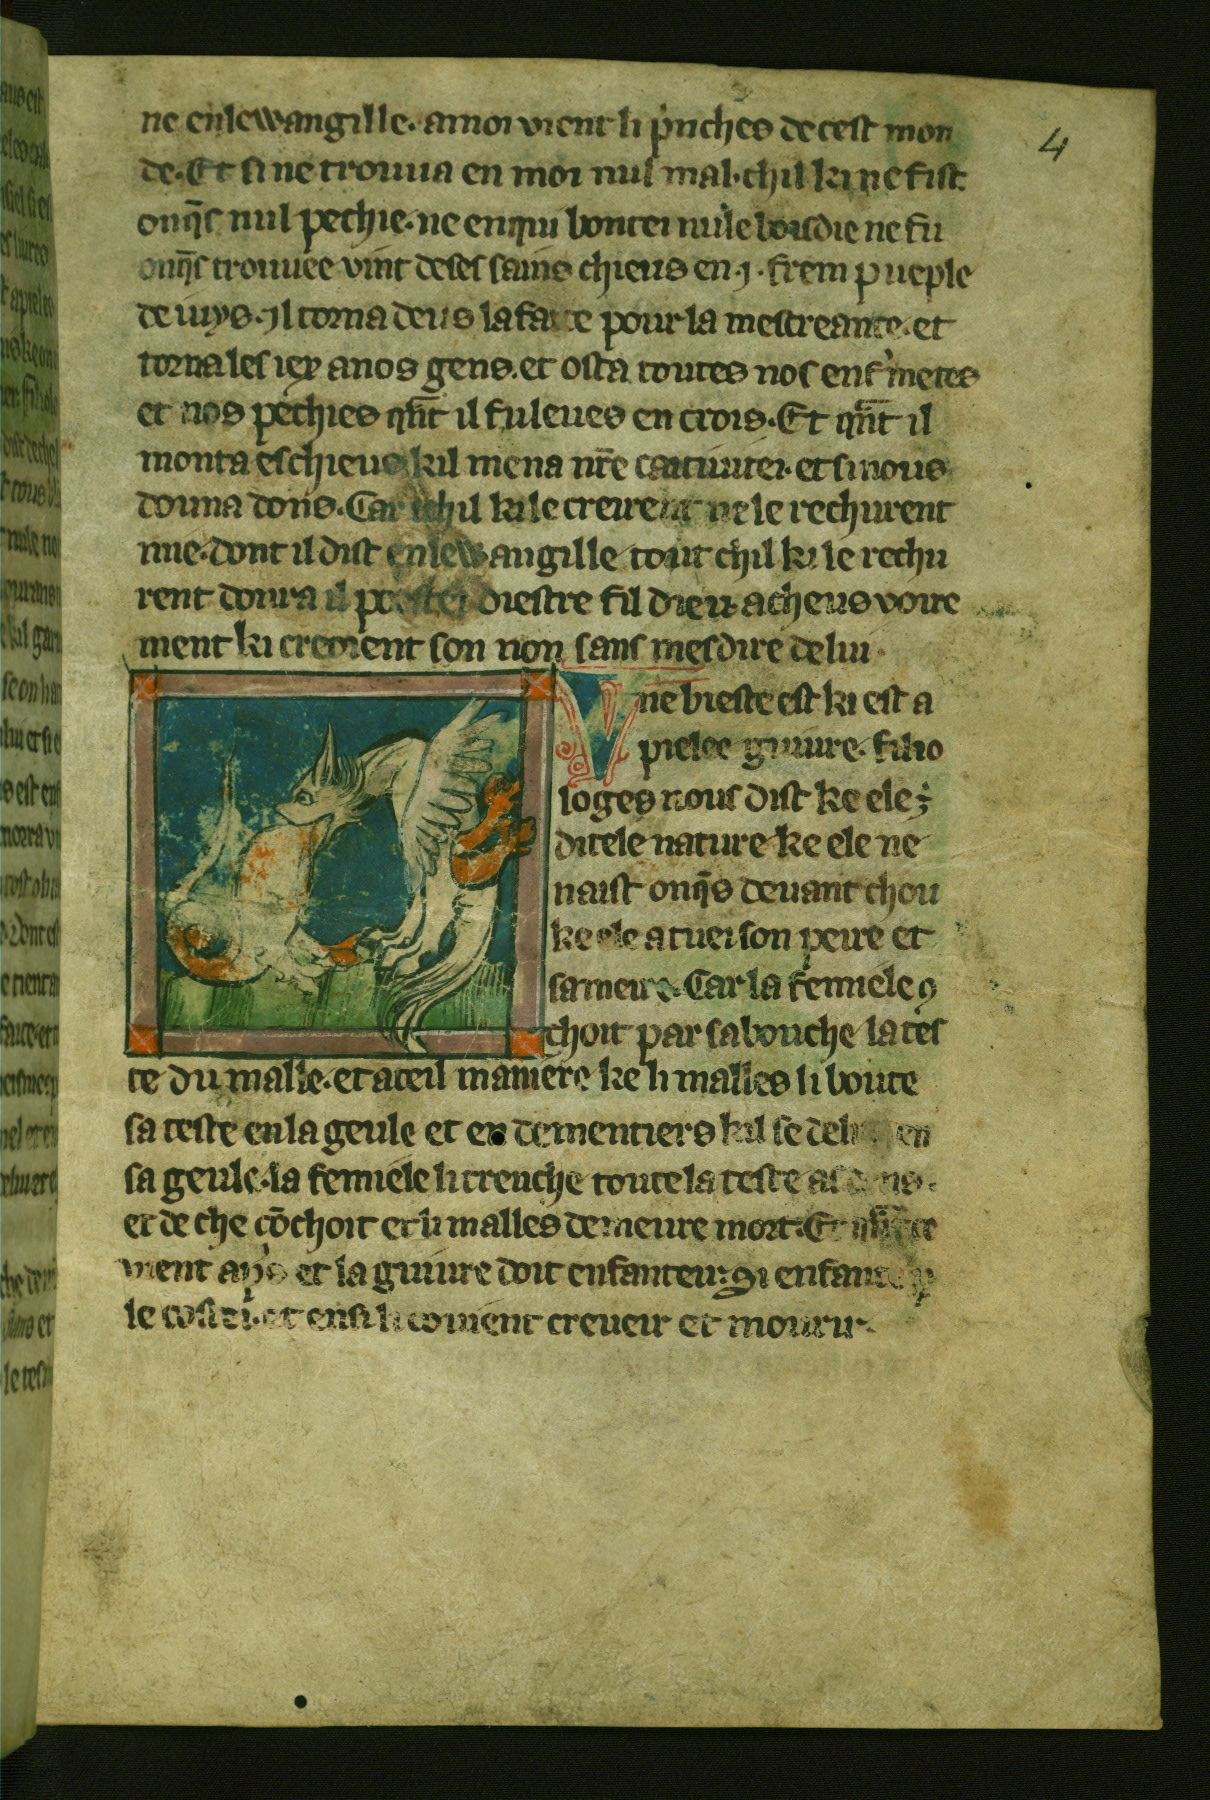 ne enlewangille. amoi vient li pͥnches de cest mon
4
de. Et si ne trouua en moi nul mal. chil ki ne fist
onq̄s nul pechie. ne en qui bontei nule boisdie ne fu
onq̄s trouuee vint de ses sains chieus en .j. frem pueple
de iuys. Jl torna deus la face pour la mescreance. et
torna les iex a nos gens. et osta toutes nos enf'metes
et nos pechies qn̄t il fu leues en crois. Et qn̄t il
monta es chieus kil mena nr̄e caitiuitei. et si nous
douna dons. Car chil ki le creirent ne le rechurent
mie. dont il dist enlewangille tout chil ki le rechu
rent donra il poestei diestre fil dieu. a cheus voire
ment ki creoient son non sans mesdire de lui.
Vne bieste est ki est a
pielee guiure. filio
loges nous dist ke ele ꝫ
di tele nature ke ele ne
naist onq̄s deuant chou
ke ele a tuei son peire et
sa meire. Car la femiele ꝯ
choit par sa bouche la tes
te du malle. et a teil maniere ke li malles li boute
sa teste en la geule et en dementiers kil se deli en
sa geule. la femiele li trenche toute la teste as dens.
et de che cōchoit et li malles demeure mort. Et qn̄t ce
vient ap's et la guiure doit enfanteir. si enfante p
le costei. et ensi li couient creueir et mourir.